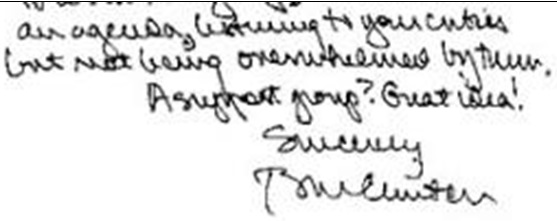 an agenda, listening to your critics
but not being overwhelmed by them.
A support group? Great idea!
Sincerely
Bill Clinton